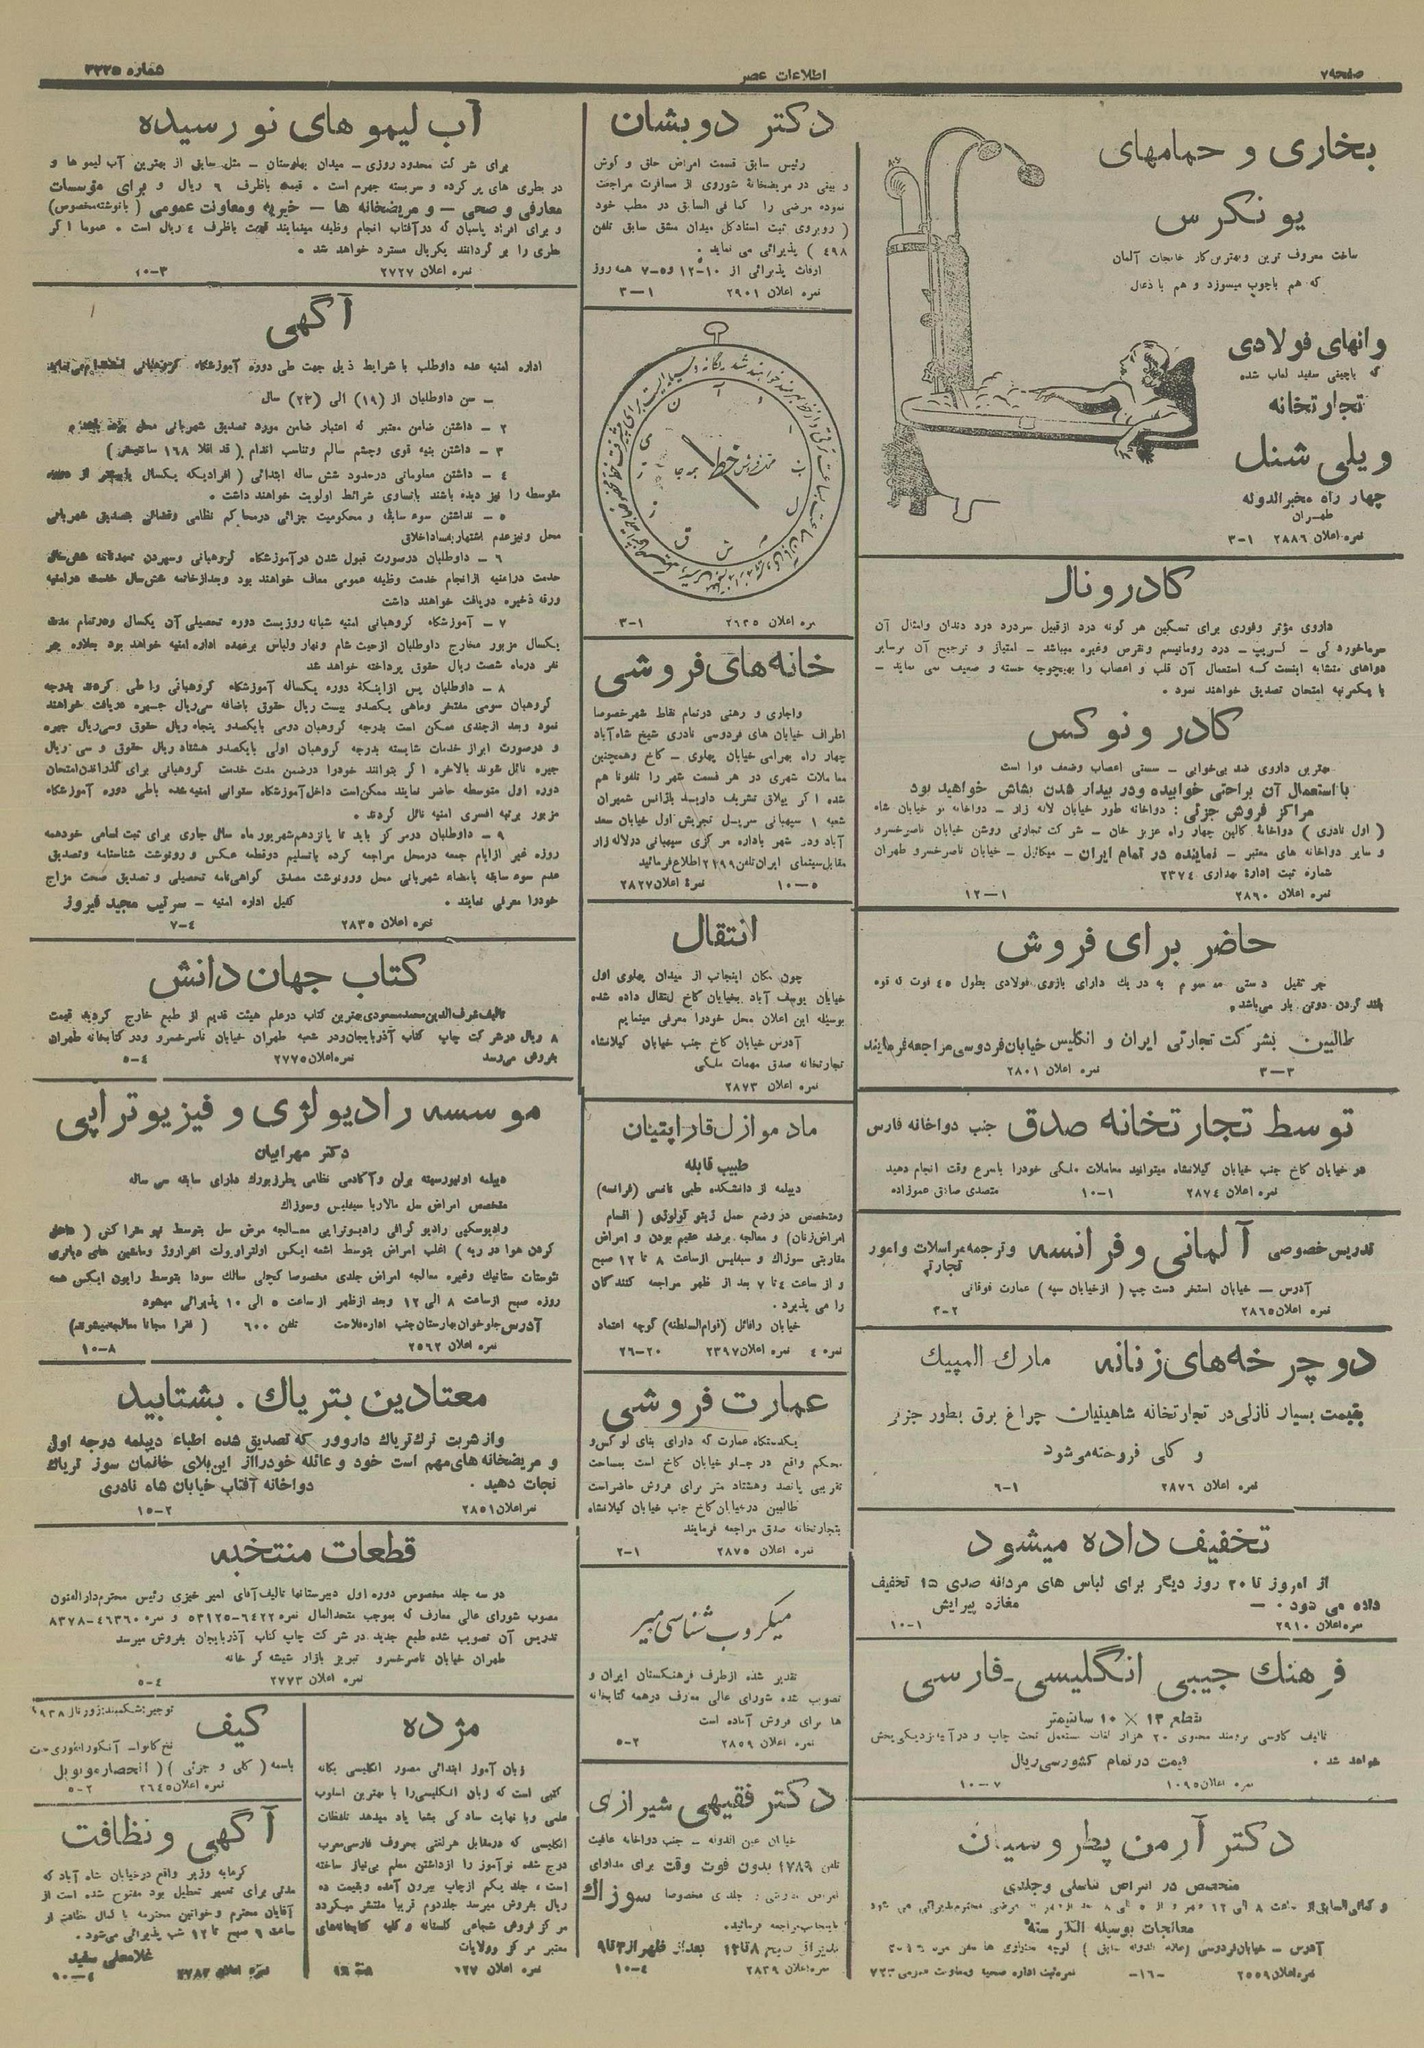 صفحه ۷
اطلاعات عصر
شماره ۳۲۲۵
بخاری و حمامهای
یونکرس
ساخت معروف ترین وبهترین کار خانجات آلمان
که هم باچوب میسوزد و هم با ذغال
وانهای فولادی
که باچینی سفید لعاب شده
تجارتخانه
ویلی شنل
چهار راه مخبرالدوله
طهران
نمره اعلان ۲۸۸۶ ۱-۳
کادرونال
داروی مؤثر وفوری برای تسکین هر گونه درد ازقبیل سردرد درد دندان وامثال آن
سرماخوردگی - گریپ - درد روماتیسم ونقرس وغیره میباشد - امتیاز و ترجیح آن برسایر
دواهای متشابه اینست که استعمال آن قلب و اعصاب را بهیچوجه خسته و ضعیف نمی نماید -
با یکمرتبه امتحان تصدیق خواهند نمود .
کادرونوکس
بهترین داروی ضد بی‌خوابی - سستی اعصاب وضعف قوا است
با استعمال آن براحتی خوابیده ودر بیدار شدن بشاش خواهید بود
مراکز فروش جزئی : دواخانه طور خیابان لاله زار - دواخانه نو خیابان شاه
( اول نادری ) دواخانهٔ کالین چهار راه عزیز خان - شرکت تجارتی روشن خیابان ناصرخسرو
و سایر دواخانه های معتبر - نماینده در تمام ایران - میکائیل - خیابان ناصرخسرو طهران
شماره ثبت ادارهٔ بهداری ۲۳۷٤
نمره اعلان ۲۸۹۰ ۱-۱۲
حاضر برای فروش
جر ثقیل دستی موسوم به دریك دارای بازوی فولادی بطول ٤۵ فوت که قوه
بلند کردن دوتن بار می‌باشد .
طالبین بشرکت تجارتی ایران و انگلیس خیابان فردوسی مراجعه فرمایند
نمره اعلان ۲۸۰۱ ۳-۳
توسط تجارتخانه صدق جنب دواخانه فارس
در خیابان کاخ جنب خیابان گیلانشاه میتوانید معاملات ملکی خودرا باسرع وقت انجام دهید
متصدی صادق عموزاده
نمره اعلان ۲۸۷٤ ۱-۱۰
تدریس خصوصی آلمانی و فرانسه و ترجمه مراسلات وامور تجارتی
آدرس - خیابان استخر دست چپ ( ازخیابان سپه ) عمارت فوقانی
نمره اعلان ۲۸۶۵ ۲-۳
دوچرخه‌های زنانه مارك المپیك
بقیمت بسیار نازلی در تجارتخانه شاهینیان چراغ برق بطور جزئی
و کلی فروخته می‌شود
نمره اعلان ۲۸۷۶ ۱-۶
تخفیف داده میشود
از امروز تا ۲۰ روز دیگر برای لباس های مردانه صدی ۱۵ تخفیف
داده می شود . - مغازه پیرایش
نمره اعلان ۲۹۱۰ ۱-۱۰
فرهنك جیبی انگلیسی-فارسی
بقطع ۱۳ × ۱۰ سانتیمتر
خواهد شد .
قیمت در تمام کشور سی ریال
نمره اعلان ۱۰۹۵ ۷-۱۰
دکتر آرمن پطروسیان
متخصص در امراض تناسلی وجلدی
معالجات بوسیله الکتریسته
نمره اعلان ۲۵۵۹ -۱۶- نمره ثبت اداره صحیه ومعاونت عمومی ۷۲۳
دکتر دوبشان
رئیس سابق قسمت امراض حلق و گوش
و بینی در مریضخانهٔ شوروی از مسافرت مراجعت
نموده مرضی را کما فی السابق در مطب خود
( روبروی ثبت اسناد کل میدان مشق سابق تلفن
٤۹۸ ) پذیرائی می نماید .
اوقات پذیرائی از ۱۰-۱۲ و ۵-۷ همه روز
نمره اعلان ۲۹۰۱ ۱-۳
نمره اعلان ۲۶۳۵ ۱-۳
خانه‌های فروشی
واجاری و رهنی درتمام نقاط شهر خصوصا
اطراف خیابان های فردوسی نادری شیخ شاه‌آباد
چهار راه بهرامی خیابان پهلوی - کاخ وهمچنین
معاملات شهری در هر قسمت شهر را تلفونا هم
شده اگر بیلاق تشریف دارید باژانس شمیران
شعبه ۱ سیهبانی سرپل تجریش اول خیابان سعد
آباد ودر شهر باداره مرکزی سیهبانی درلاله‌زار
مقابل سینمای ایران تلفن ۲۱۹۹ اطلاع فرمائید
نمرهٔ اعلان ۲۸۲۷ ۵-۱۰
انتقال
چون مکان اینجانب از میدان پهلوی اول
خیابان یوسف آباد بخیابان کاخ انتقال داده شده
بوسیله این اعلان محل خودرا معرفی مینمایم
آدرس خیابان کاخ جنب خیابان گیلانشاه
تجارتخانه صدق مهمات ملکی
نمره اعلان ۲۸۷۳
مادموازل قاراپتیان
طبیب قابله
دیپلمه از دانشکده طبی نانسی (فرانسه)
ومتخصص در وضع حمل ژینو کولوژی ( اقسام
امراض زنان) و معالجه برضد عقیم بودن و امراض
مقاربتی سوزاك و سیفلیس از ساعت ۸ تا ۱۲ صبح
و از ساعت ٤ تا ۷ بعد از ظهر مراجعه کنندگان
را می پذیرد .
خیابان رافائل (قوام‌السلطنه) کوچه اعتماد
نمره ٤ نمره اعلان ۲۳۹۷ ۲۰-۲۶
عمارت فروشی
یکدستگاه عمارت که دارای بنای لوکس و
محکم واقع در جلو خیابان کاخ است بمساحت
تقریبی پانصد وهشتاد متر برای فروش حاضر است
طالبین درخیابان کاخ جنب خیابان گیلانشاه
بتجارتخانه صدق مراجعه فرمایند
نمره اعلان ۲۸۷۵ ۱-۲
میکروب شناسی میر
تقدیر شده ازطرف فرهنگستان ایران و
تصویب شده شورای عالی معارف درهمه کتابخانه
ها برای فروش آماده است
نمره اعلان ۲۸۵۹ ۲-۵
دکتر فقیهی شیرازی
خیابان عین الدوله - جنب دواخانه عافیت
تلفن ۱۷۸۹ بدون فوت وقت برای مداوای
جلدی مخصوصا سوزاك
مراجعه فرمائید .
پذیرائی صبح ۸ تا ۱۲ بعد از ظهر از ۳ تا ۹
نمره اعلان ۲۸۳۹ ٤-۱۰
آب لیموهای نورسیده
برای شرکت محدود روزی - میدان بهارستان - مثل سابق از بهترین آب لیموها و
در بطری های پر کرده و سربسته جهرم است . قیمت باظرف ۶ ریال و برای مؤسسات
معارفی و صحی - و مریضخانه ها - خیریه ومعاونت عمومی ( بانوشته مخصوص)
و برای افراد پاسبان که در آفتاب انجام وظیفه مینمایند قیمت باظرف ٤ ریال است . عموما اگر
بطری را بر گردانند یکریال مسترد خواهد شد .
نمره اعلان ۲۷۲۷ ۳-۱۰
آگهی
اداره امنیه عده داوطلب با شرایط ذیل جهت طی دوره آموزشگاه گروهبانی استخدام می‌نماید
- سن داوطلبان از (۱۹) الی (۲۳) سال
۲ - داشتن ضامن معتبر که اعتبار ضامن مورد تصدیق شهربانی محل بوده باشد .
۳ - داشتن بنیه قوی وچشم سالم وتناسب اندام ( قد اقلا ۱۶۸ سانتیمتر )
٤ - داشتن معلوماتی درحدود شش ساله ابتدائی ( افرادیکه یکسال یا بیشتر از دوره
متوسطه را نیز دیده باشند باتساوی شرائط اولویت خواهند داشت .
۵ - نداشتن سوء سابقه و محکومیت جزائی درمحاکم نظامی وقضائی بتصدیق شهربانی
محل ونیز عدم اشتهار بفساد اخلاق
۶ - داوطلبان درصورت قبول شدن در آموزشگاه گروهبانی وسپردن تعهدنامه شش سال
خدمت درامنیه ازانجام خدمت وظیفه عمومی معاف خواهند بود وبعد از خاتمه شش سال خدمت درامنیه
ورقه ذخیره دریافت خواهند داشت
۷ - آموزشگاه گروهبانی امنیه شبانه روزیست دوره تحصیلی آن یکسال ودرتمام مدت
یکسال مزبور مخارج داوطلبان ازحیث شام ونهار ولباس برعهده اداره امنیه خواهد بود بعلاوه بهر
نفر درماه شصت ریال حقوق پرداخته خواهد شد
۸ - داوطلبان پس ازاینکه دوره یکساله آموزشگاه گروهبانی را طی کردند بدرجه
گروهبان سومی مفتخر وماهی یکصدو بیست ریال حقوق باضافه سی‌ریال جیره دریافت خواهند
نمود وبعد ازچندی ممکن است بدرجه گروهبان دومی بایکصدو پنجاه ریال حقوق وسی‌ریال جیره
و درصورت ابراز خدمات شایسته بدرجه گروهبان اولی بایکصدو هشتاد ریال حقوق و سی ریال
جیره نائل شوند بالاخره اگر بتوانند خودرا درضمن مدت خدمت گروهبانی برای گذراندن امتحان
دوره اول متوسطه حاضر نمایند ممکن است داخل آموزشگاه ستوانی امنیه شده باطی دوره آموزشگاه
مزبور برتبه افسری امنیه نائل گردند .
۹ - داوطلبان درمرکز باید تا پانزدهم شهریور ماه سال جاری برای ثبت اسامی خودهمه
روزه غیر ازایام جمعه درمحل مراجعه کرده باتسلیم دوقطعه عکس و رونوشت شناسنامه وتصدیق
عدم سوء سابقه بامضاء شهربانی محل ورونوشت مصدق گواهی‌نامه تحصیلی و تصدیق صحت مزاج
خودرا معرفی نمایند . کفیل اداره امنیه - سرتیپ مجید فیروز
نمره اعلان ۲۸۳۵ ٤-۷
کتاب جهان دانش
تألیف شرف‌الدین محمد مسعودی بهترین کتاب درعلم هیئت قدیم از طبع خارج گردید قیمت
۸ ریال در شرکت چاپ کتاب آذربایجان ودر شعبه طهران خیابان ناصرخسرو ودر کتابخانه طهران
بفروش می‌رسد نمره اعلان ۲۷۷۵ ٤-۵
موسسه رادیولژی و فیزیوتراپی
دکتر مهرابیان
دیپلمه اونیورسیته برلن وآکادمی نظامی پطرزبورك دارای سابقه سی ساله
متخصص امراض سل مالاریا سیفلیس وسوزاك
رادیوسکپی رادیو گرافی رادیوترابی معالجه مرض سل بتوسط نیو متراکس ( داخل
کردن هوا در ریه ) اغلب امراض بتوسط اشعه ایکس اولتراویولت انفراروژ وماشین های دیاتری
تنوستات ستاتیك وغیره معالجه امراض جلدی مخصوصا کچلی سالك سودا بتوسط رایون ایکس همه
روزه صبح از ساعت ۸ الی ۱۲ وبعد ازظهر از ساعت ۵ الی ۱۰ پذیرائی میشود
آدرس جلوخوان بهارستان جنب اداره فلاحت تلفن ۶۰۰ ( فقرا مجانا معالجه میشوند)
نمره اعلان ۲۵۶۲ ۸-۱۰
معتادین بتریاك . بشتابید
واز شربت ترك تریاك داروور که تصدیق شده اطباء دیپلمه درجه اول
و مریضخانه‌های مهم است خود و عائله خودرا از این بلای خانمان سوز تریاك
نجات دهید . دواخانه آفتاب خیابان شاه نادری
نمره اعلان ۲۸۵۱ ۲-۱۵
قطعات منتخبه
در سه جلد مخصوص دوره اول دبیرستانها تالیف آقای امیر خیزی رئیس محترم دارالفنون
مصوب شورای عالی معارف که بموجب متحدالمال نمره ۶٤۲۲-۵۳۱۲۵ و نمره ٤۶۳۶۰-۸۳۷۸
تدریس آن تصویب شده طبع جدید در شرکت چاپ کتاب آذربایجان بفروش میرسد
طهران خیابان ناصرخسرو تبریز بازار شیشه گر خانه
نمره اعلان ۲۷۷۳ ٤-۵
مژده
زبان آموز ابتدائی مصور انگلیسی یگانه
کتبی است که زبان انگلیسی را با بهترین اسلوب
علمی وبا نهایت سادگی بشما یاد میدهد تلفظات
انگلیسی که درمقابل هر لغتی بحروف فارسی معرب
درج شده نوآموز را ازداشتن معلم بی‌نیاز ساخته
است ، جلد یکم ازچاپ بیرون آمده وبقیمت ده
ریال بفروش میرسد جلد دوم قریبا منتشر میگردد
مرکز فروش شجاعی گلستانه و کلیه کتابخانه‌های
معتبر مرکز وولایات
نمره اعلان ۱۲۷
کیف
باسمه ( کلی و جزئی ) ( انحصار مونوپل )
نمره اعلان ۲۶٤۵ ۲-۵
آگهی و نظافت
گرمابه وزیر واقع درخیابان شاه آباد که
مدتی برای تعمیر تعطیل بود مفتوح شده است از
آقایان محترم و خواتین محترمه با کمال نظافت از
ساعت ۶ صبح تا ۱۲ شب پذیرائی می‌شود .
غلامعلی سفید
نمره اعلان ۲۷۸۲ ٤-۱۰